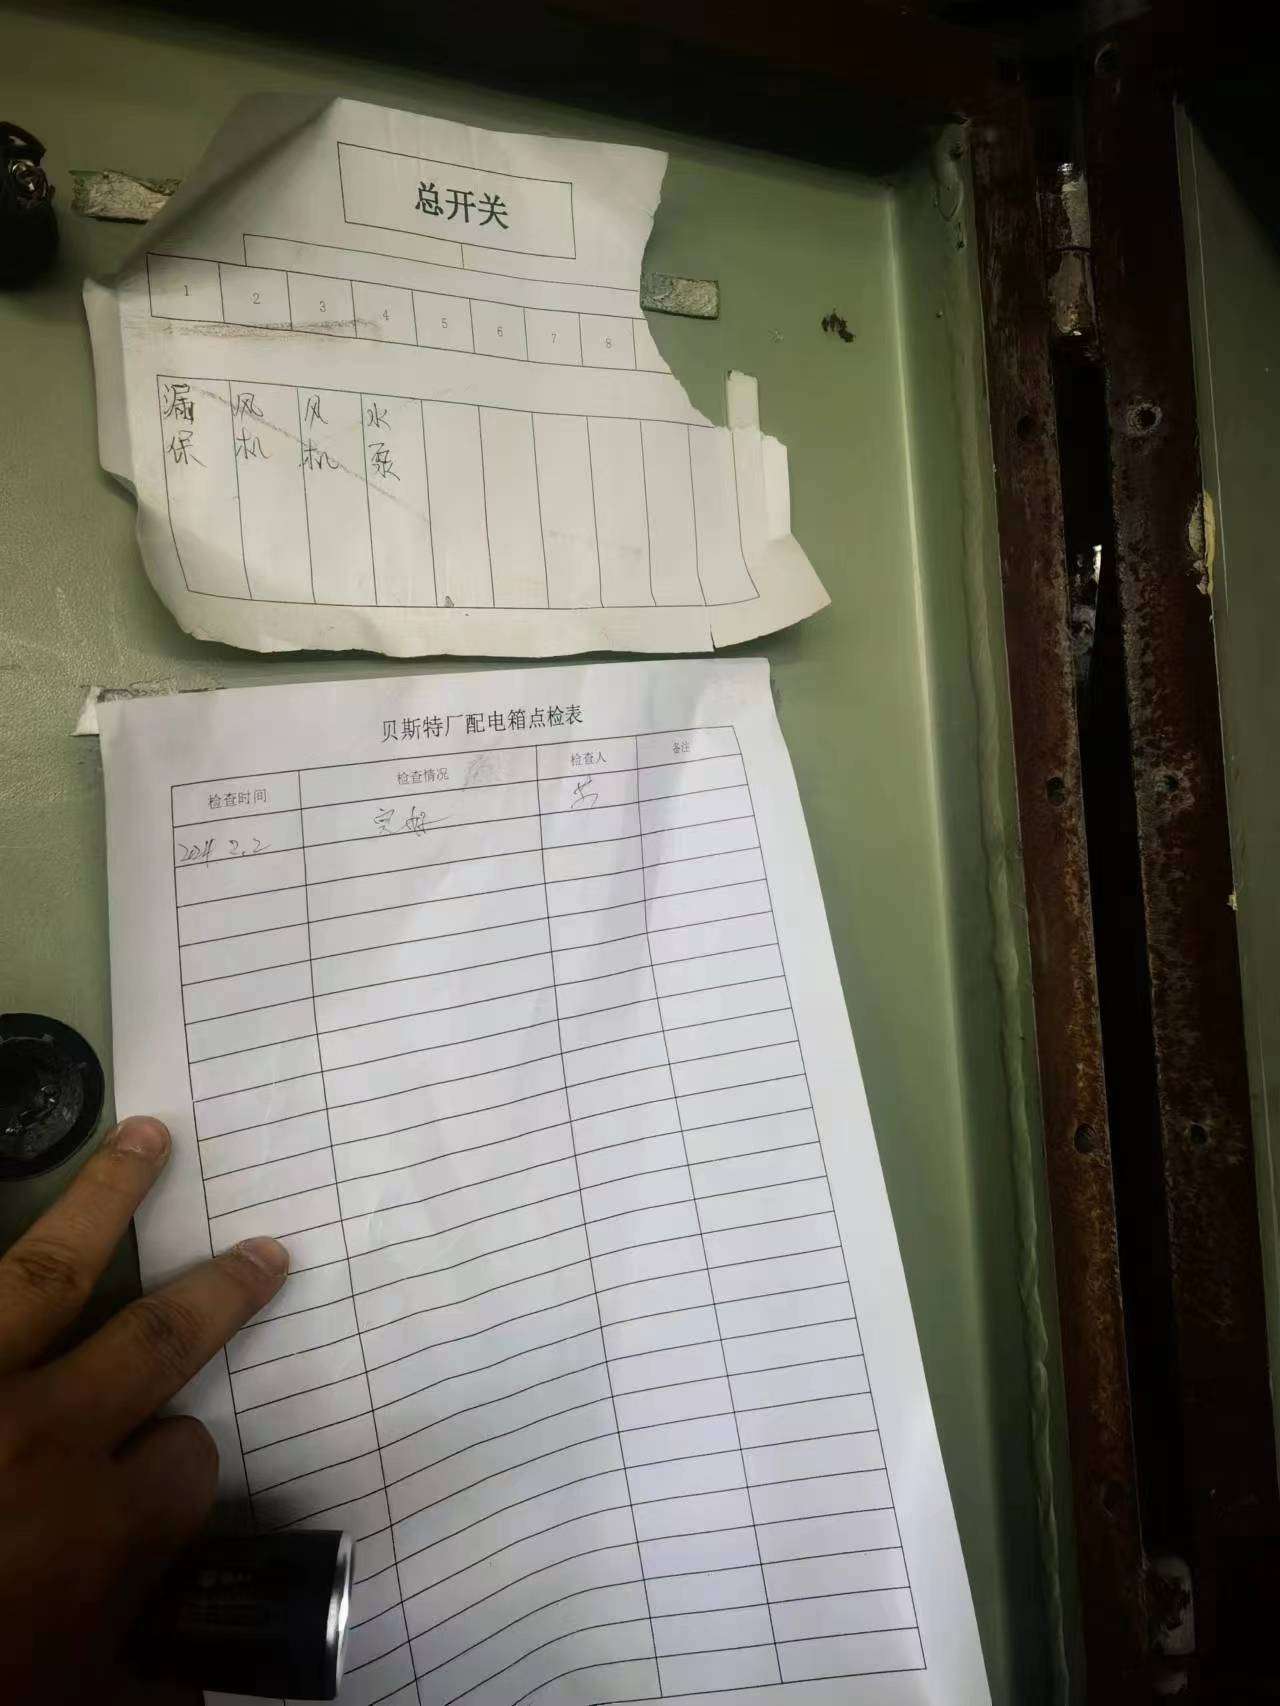 总开关
1 2 3 4 5 6 7 8
漏保 风机 风机 水泵
贝斯特厂配电箱点检表
检查时间 检查情况 检查人 备注
2024 2.2 完好